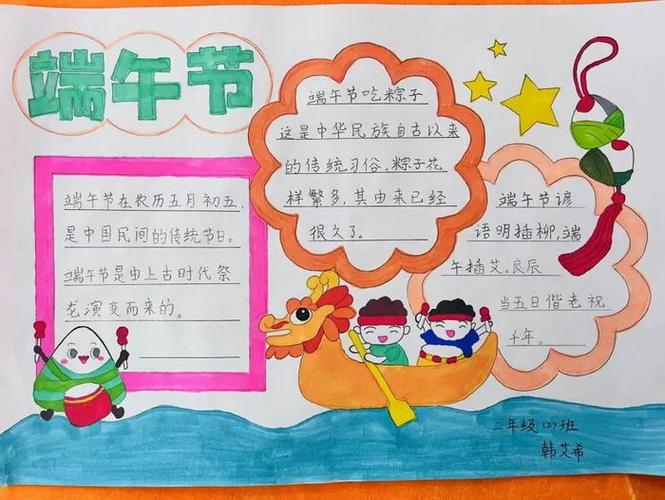 端午节
端午节在农历五月初五,
是中国民间的传统节日。
端午节是由上古时代祭
龙演变而来的。
端午节吃粽子
这是中华民族自古以来
的传统习俗.粽子花
样繁多,其由来已经
很久了.
端午节谚
语明插柳,端
午插艾.良辰
当五日偕老祝
千年.
二年级(2)班
韩艾希